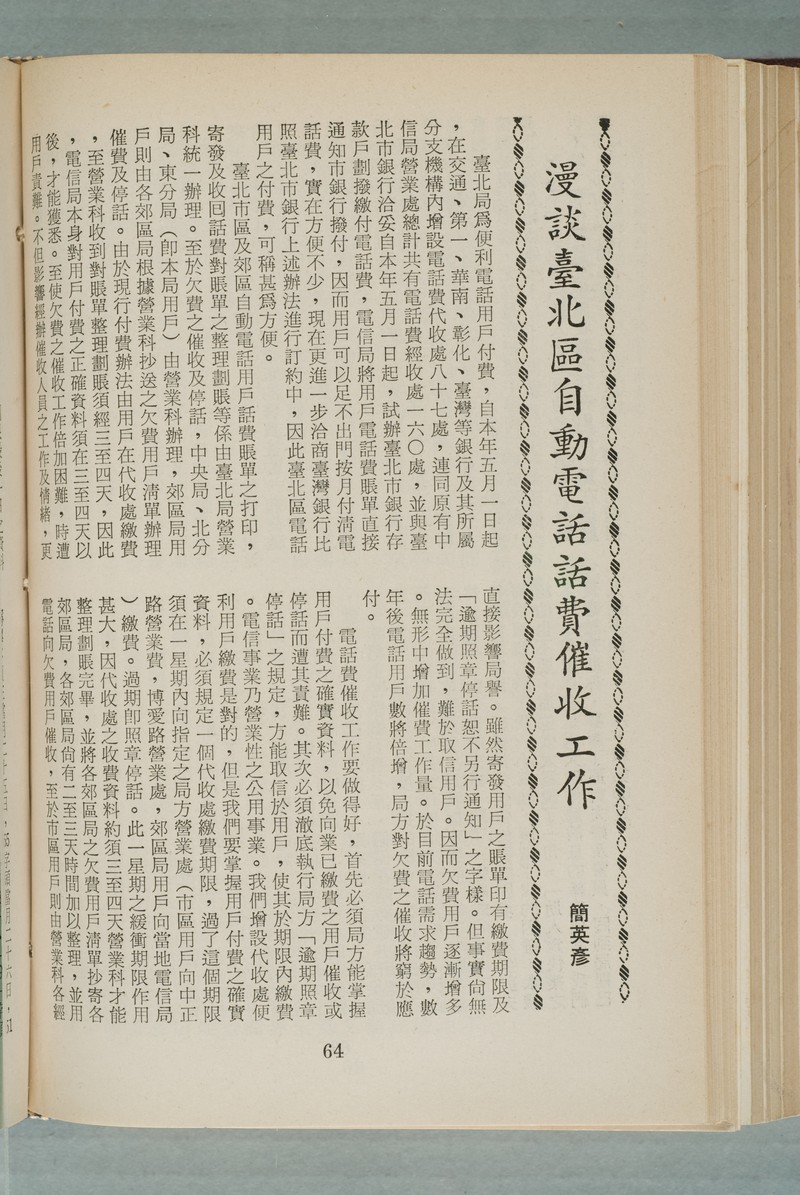 漫談臺北區自動電話話費催收工作
簡英彥
臺北局爲便利電話用戶付費，自本年五月一日起
，在交通、第一、華南、彰化、臺灣等銀行及其所屬
分支機構內增設電話費代收處八十七處，連同原有中
信局營業處總計共有電話費經收處一六〇處，並與臺
北市銀行洽妥自本年五月一日起，試辦臺北市銀行存
款戶劃撥繳付電話費，電信局將用戶電話費賬單直接
通知市銀行撥付，因而用戶可以足不出門按月付淸電
話費，實在方便不少，現在更進一步洽商臺灣銀行比
照臺北市銀行上述辦法進行訂約中，因此臺北區電話
用戶之付費，可稱甚爲方便。
臺北市區及郊區自動電話用戶話費賬單之打印，
寄發及收回話費對賬單之整理劃賬等係由臺北局營業
科統一辦理。至於欠費之催收及停話，中央局、北分
局、東分局（卽本局用戶）由營業科辦理，郊區局用
戶則由各郊區局根據營業科抄送之欠費用戶淸單辦理
催費及停話。由於現行付費辦法由用戶在代收處繳費
，至營業科收到對賬單整理劃賬須經三至四天，因此
，電信局本身對用戶付費之正確資料須在三至四天以
後，才能獲悉。至使欠費之催收工作倍加困難，時遭
用戶責難。不但影響經辦催收人員之工作及情緒，更
直接影響局譽。雖然寄發用戶之賬單印有繳費期限及
「逾期照章停話恕不另行通知」之字樣。但事實尙無
法完全做到，難於取信用戶。因而欠費用戶逐漸增多
。無形中增加催費工作量。於目前電話需求趨勢，數
年後電話用戶數將倍增，局方對欠費之催收將窮於應
付。
電話費催收工作要做得好，首先必須局方能掌握
用戶付費之確實資料，以免向業已繳費之用戶催收或
停話而遭其責難。其次必須澈底執行局方「逾期照章
停話」之規定，方能取信於用戶，使其於期限內繳費
。電信事業乃營業性之公用事業。我們增設代收處便
利用戶繳費是對的，但是我們要掌握用戶付費之確實
資料，必須規定一個代收處繳費期限，過了這個期限
須在一星期內向指定之局方營業處（市區用戶向中正
路營業費，博愛路營業處，郊區局用戶向當地電信局
）繳費。過期卽照章停話。此一星期之緩衝期限作用
甚大，因代收處之收費資料約須三至四天營業科才能
整理劃賬完畢，並將各郊區局之欠費用戶淸單抄寄各
郊區局，各郊區局尙有二至三天時間加以整理，並用
電話向欠費用戶催收，至於市區用戶則由營業科各經
64